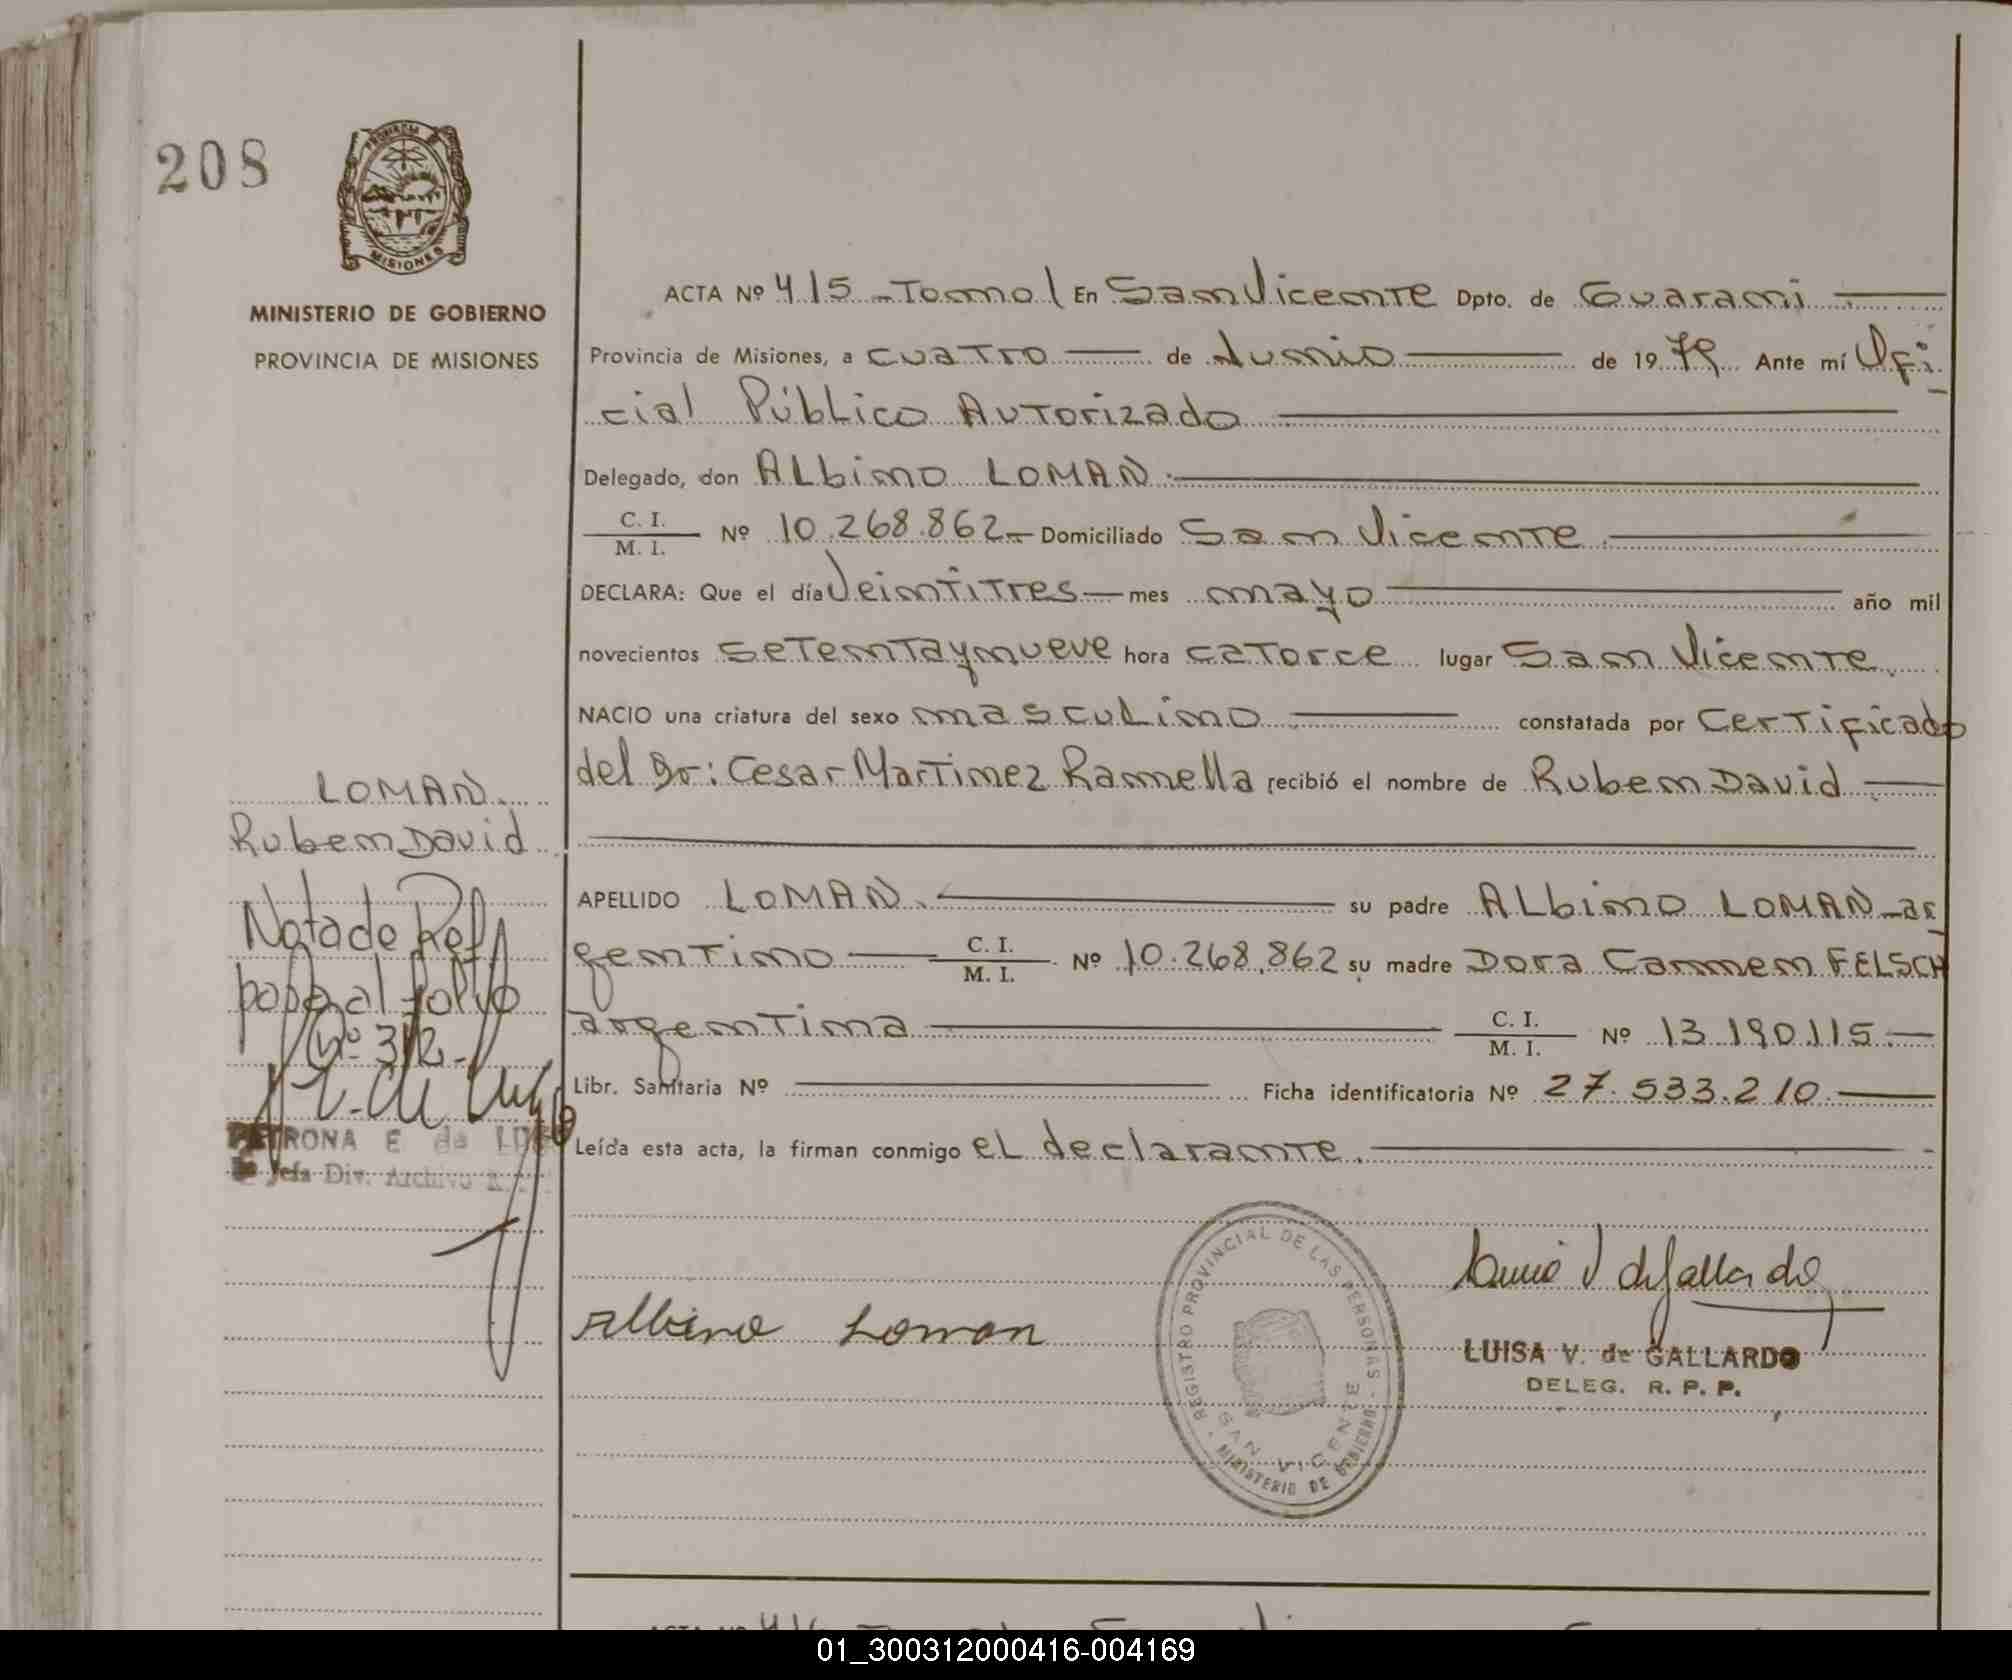 208
PROVINCIA DE
MISIONES
MINISTERIO DE GOBIERNO
PROVINCIA DE MISIONES
ACTA Nº 415 - Tomo I En San Vicente Dpto. de Guarani
Provincia de Misiones, a cuatro de Junio de 1979 Ante mí Ofi
cial Público Autorizado
Delegado, don Albino LOMAN.
C. I.
M. I. Nº 10.268.862.- Domiciliado San Vicente.
DECLARA: Que el día Veintitres mes mayo año mil
novecientos setentaynueve hora catorce lugar San Vicente.
NACIO una criatura del sexo masculino constatada por certificado
del Dr: Cesar Martinez Ramella recibió el nombre de Ruben David
LOMAN.
Ruben David
APELLIDO LOMAN. su padre Albino LOMAN - ar
gentino C. I.
M. I. Nº 10.268.862 su madre Dora Carmen FELSCH
argentina C. I.
M. I. Nº 13.190.115.-
Libr. Sanitaria Nº Ficha identificatoria Nº 27.533.210.
Leída esta acta, la firman conmigo el declarante.
Nota de Ref
al folio
Nº 312.-
PETRONA E de
Jefa Div. Archivo
Albino Loman
REGISTRO PROVINCIAL DE LAS PERSONAS - MINISTERIO DE GOBIERNO -
SAN VICENTE
Luisa V de Gallardo
LUISA V. de GALLARDO
DELEG. R. P. P.
01_300312000416-004169